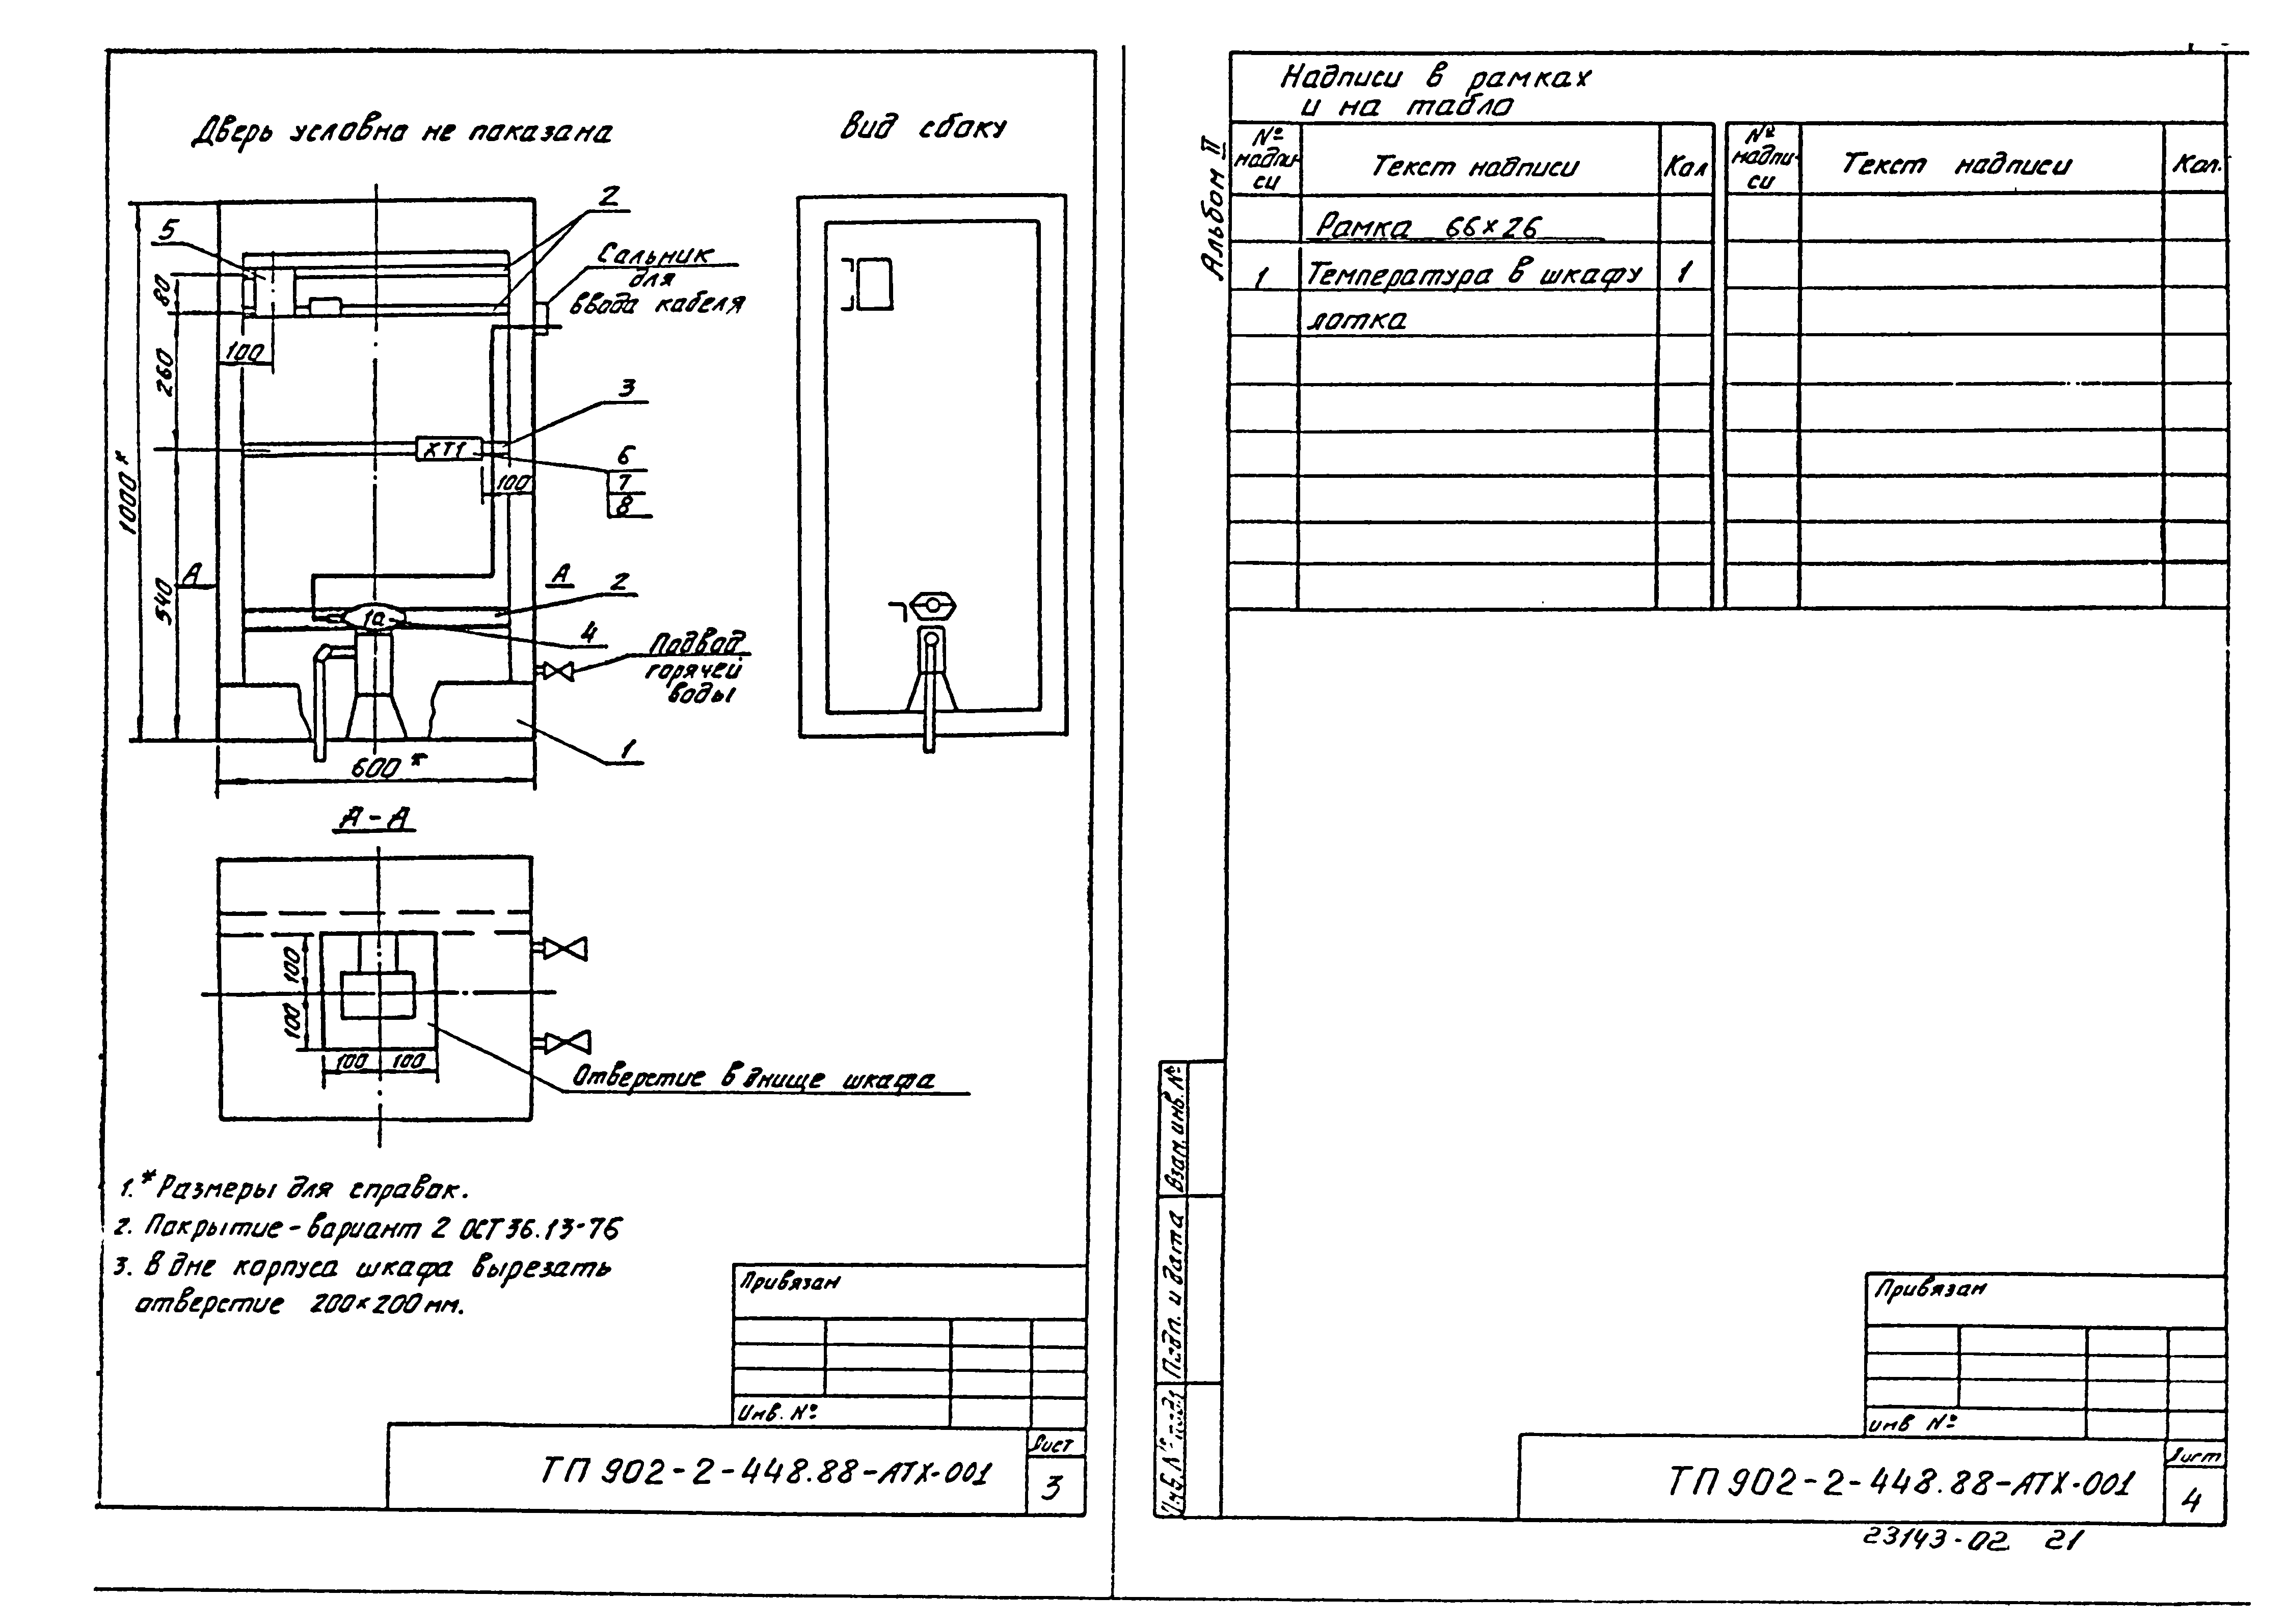 Дверь условно не показана
Вид сбоку
5
2
Сальник
для
ввода кабеля
80
100
260
3
ХТ1
6
7
8
100
1000*
А
А
540
2
1а
4
Подвод
горячей
воды
1
600*
А-А
100
100
100 100
Отверстие в днище шкафа
1.* Размеры для справок.
2. Покрытие-вариант 2 ОСТ 36.13-76
3. В дне корпуса шкафа вырезать
отверстие 200×200 мм.
Привязан
Инв. №
ТП 902-2-448.88-АТХ-001
Лист
3
Альбом II
Надписи в рамках
и на табло
№ надпи-си Текст надписи Кол
№ надпи-си Текст надписи Кол.
Рамка 66×26
1 Температура в шкафу 1
лотка
Взам. инв. №
Подп. и дата
Привязан
инв №
ТП 902-2-448.88-АТХ-001
Лист
4
23143-02 21